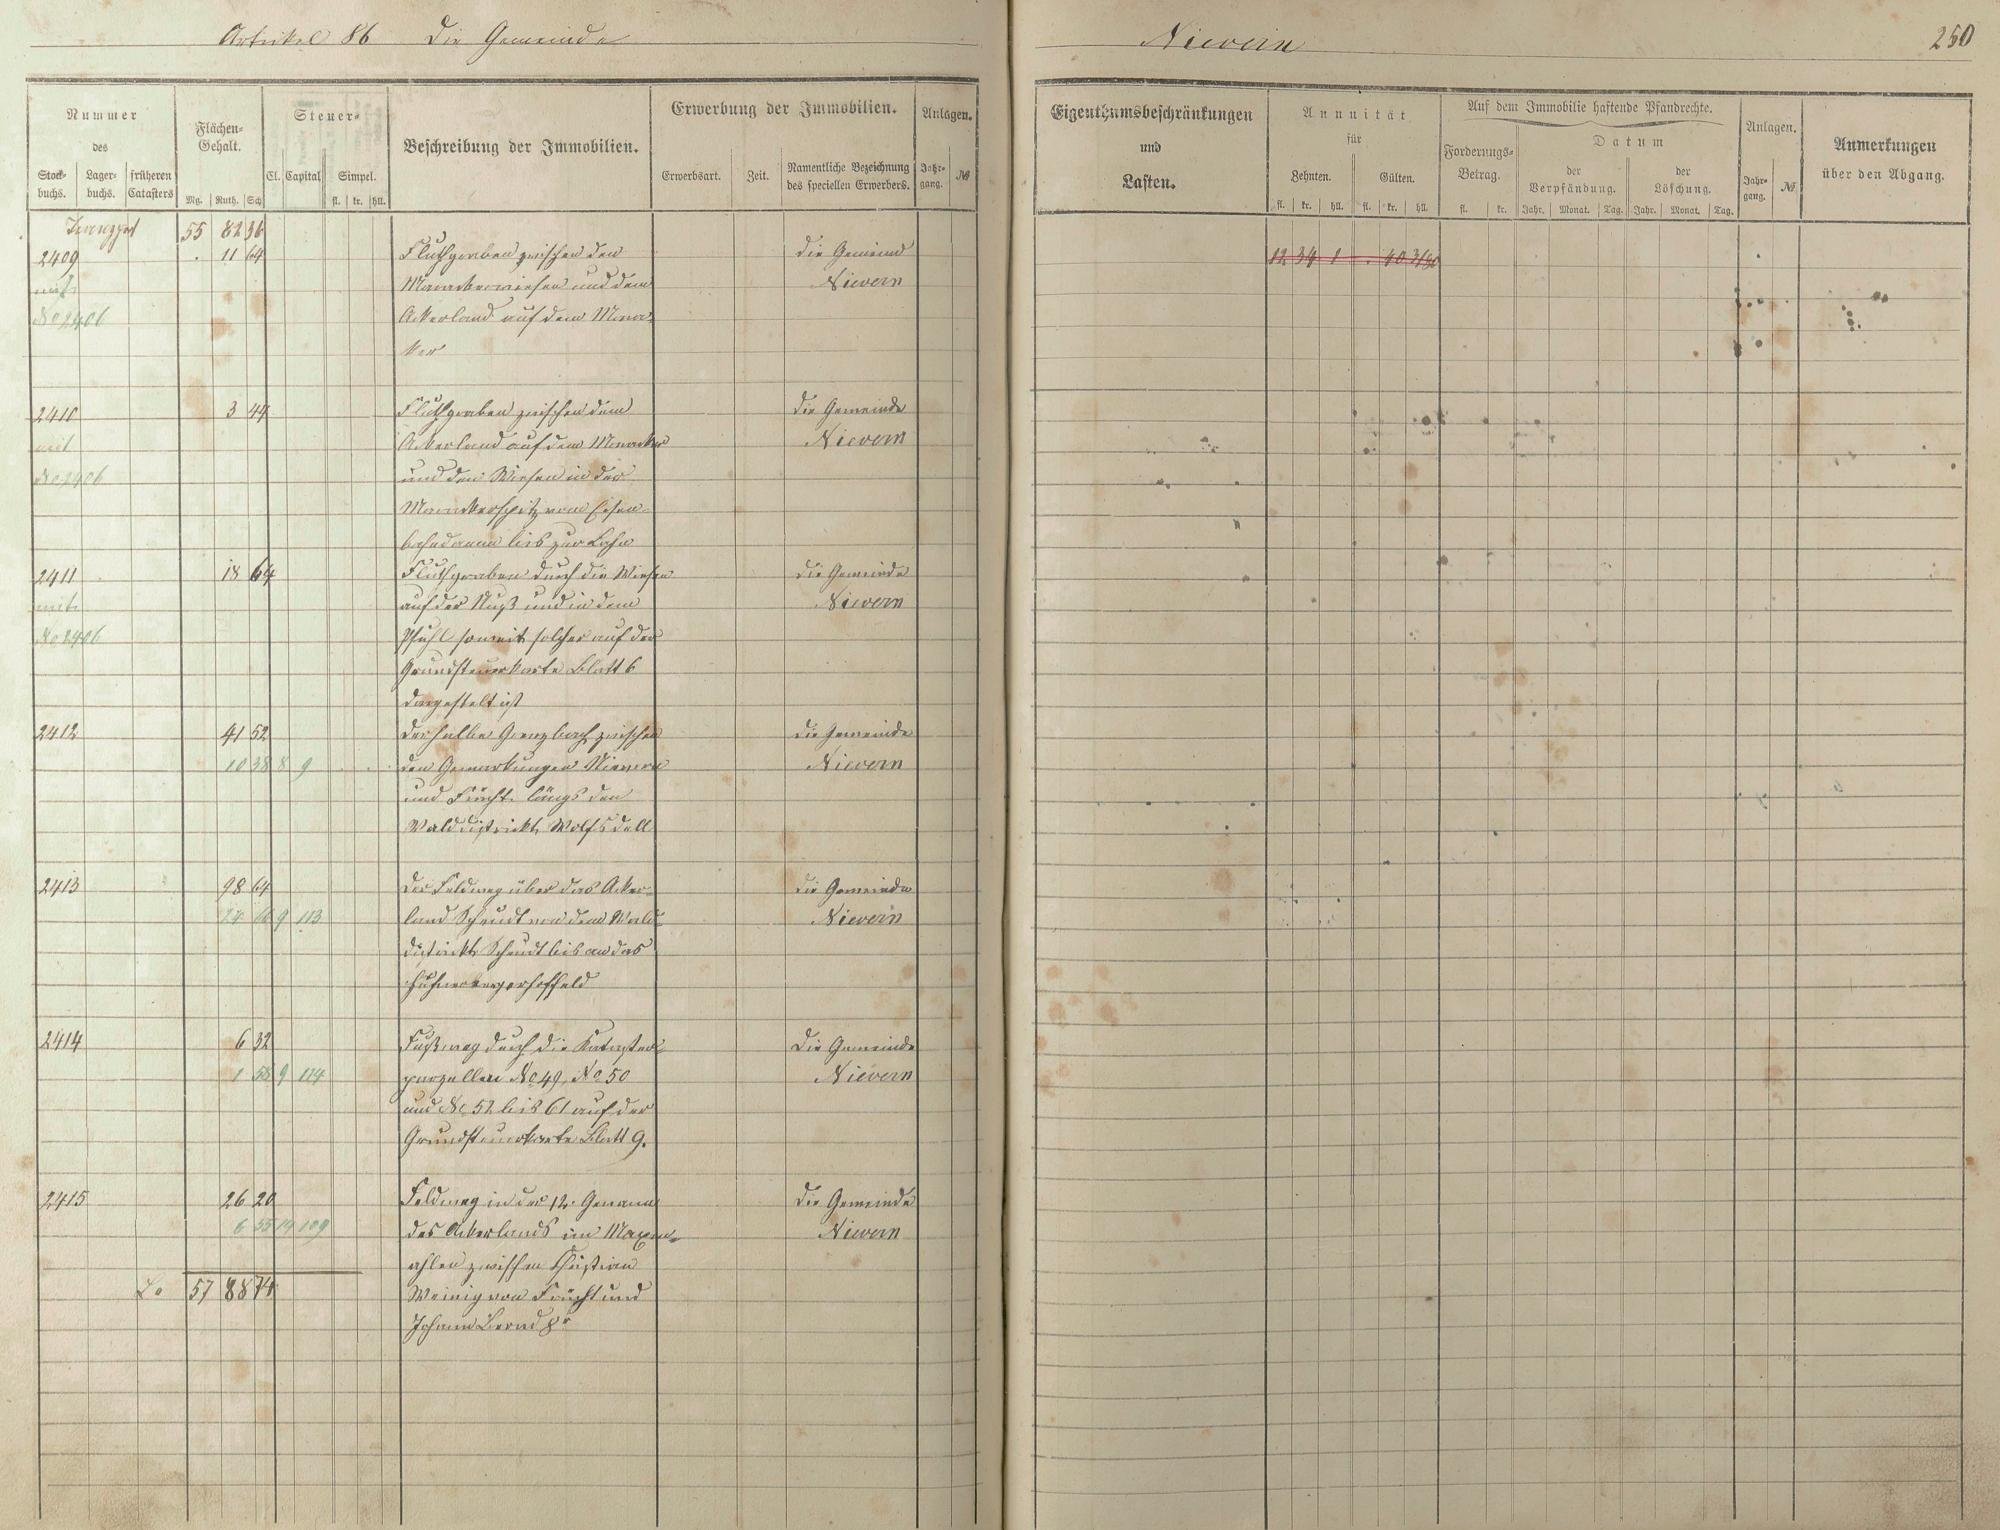 Artikel 86 Die Gemeinde
Nievern
250
Nummer
des
Stock-
buchs.
Lager-
buchs.
früheren
Catasters
Flächen-
Gehalt.
Mg. Ruth. Sch
Steuer-
Cl. Capital Simpel.
fl. kr. hll.
Beschreibung der Immobilien.
Erwerbung der Immobilien.
Erwerbsart. Zeit.
Namentliche Bezeichnung
des speciellen Erwerbers.
Anlagen.
Jahr-
gang.
№
Eigenthumsbeschränkungen
und
Lasten.
Annuität
für
Zehnten. Gülten.
fl. kr. hll. fl. kr. hll.
Auf dem Immobilie haftende Pfandrechte.
Forderungs-
Betrag.
fl. kr.
Datum
der
Verpfändung.
der
Löschung.
Jahr. Monat. Tag. Jahr. Monat. Tag.
Anlagen.
Jahr-
gang.
№
Anmerkungen
über den Abgang.
Transport 55 82 36
2409 11 64 Fluthgraben zwischen den die Gemeind
mit Manackerwiesen und dem Nievern
No 2406 Ackerland auf dem Mona-
ker
12 34 1 40 3
2410 3 44 Fluthgraben zwischen dem die Gemeinde
mit Ackerland auf dem Monacker Nievern
No 2406 und den Wiesen in der
Monackerspitz vom Eisen-
bahndamm bis zur Lahn
2411 18 64 Fluthgraben durch die Wiesen die Gemeinde
mit auf der Nuß und in dem Nievern
No 2406 Pfuhl soweit solcher auf der
Grundsteuerkarte Blatt 6
dargestelt ist
2412 41 52 der halbe Grenzbach zwischen die Gemeinde
10 38 8 9 den Gemarkungen Nievern Nievern
und Frücht längs den
Walddistrickt Wolfsdell
2413 98 64 Der Feldweg über das Acker- die Gemeinde
24 66 9 113 land Scheudt von dem Wald- Nievern
districkt Scheudt bis an das
Hühnerbergerhoffeld
2414 6 32 Fußweg durch die Kataster- Die Gemeinde
1 58 9 114 parzellen No 49, No 50 Nievern
und No 52 bis 61 auf der
Grundsteuerkarte Blatt 9.
2415 26 20 Feldweg in der 12. Gewann die Gemeinde
6 55 14 109 des Ackerlands im Maxen- Nievern
ahlen zwischen Christian
La 57 88 74 Weinig von Frücht und
Johann Bernd